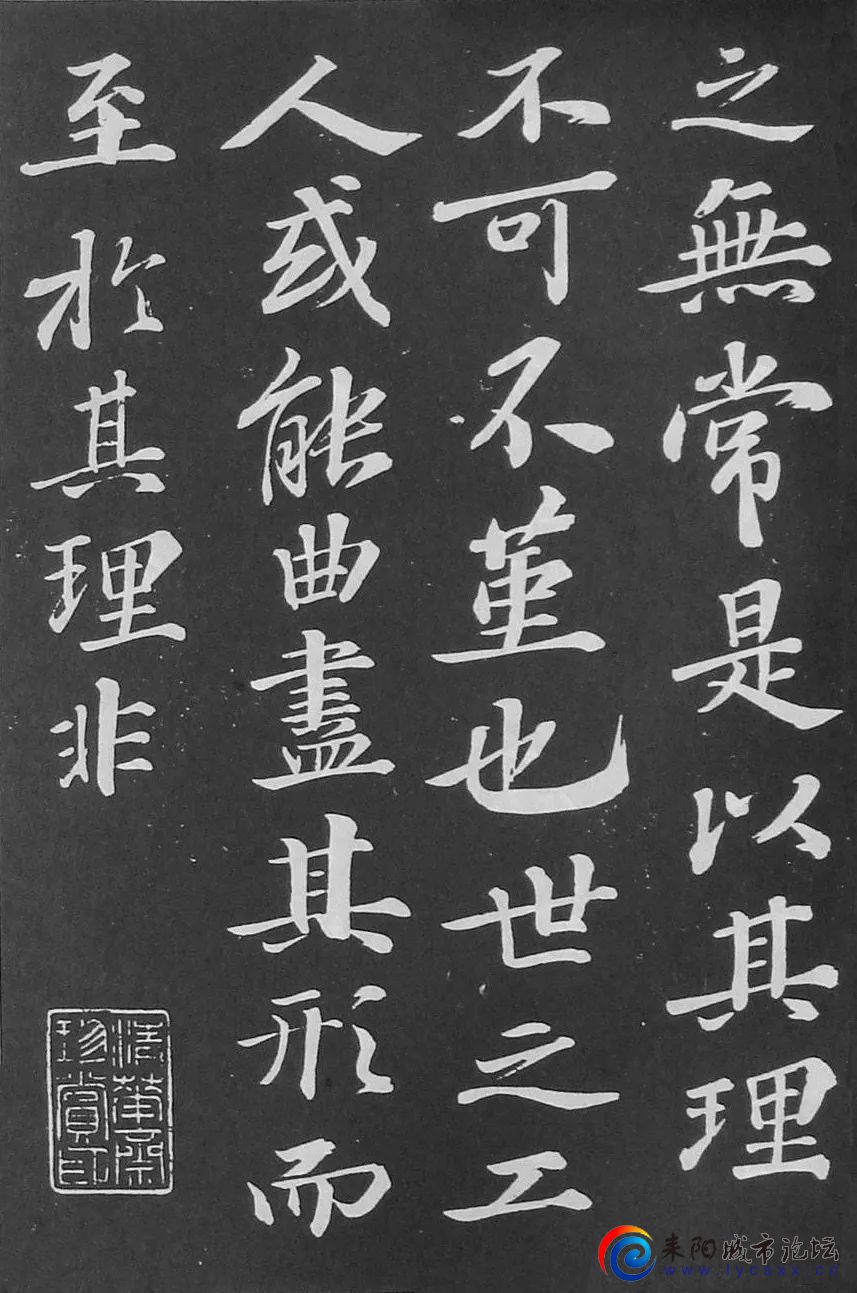 之無常是以其理
不可不堇也世之工
人或能曲盡其形而
至於其理非
淸華齋
珍賞印
耒阳城市论坛
www.lycszx.cn